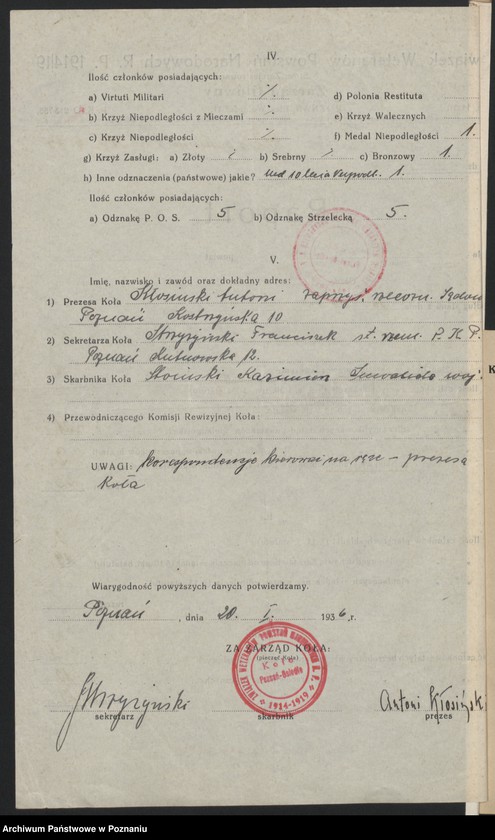 IV.
Ilość członków posiadających:
a) Virtuti Militari %. d) Polonia Restituta
b) Krzyż Niepodległości z Mieczami % e) Krzyż Walecznych
c) Krzyż Niepodległości % f) Medal Niepodległości 1.
g) Krzyż Zasługi: a) Złoty b) Srebrny c) Bronzowy 1.
h) Inne odznaczenia (państwowe) jakie? Med 10 lecia 1.
Ilość członków posiadających:
a) Odznakę P. O. S. 5 b) Odznakę Strzelecką 5.
V.
Imię, nazwisko i zawód oraz dokładny adres:
1) Prezesa Koła Kłosiński Antoni
Poznań 10
2) Sekretarza Koła Franciszek st. P. K. P.
Poznań Kutnowska 12.
3) Skarbnika Koła Kazimierz Inwalida woj.
4) Przewodniczącego Komisji Rewizyjnej Koła:
UWAGI: Korespondencje kierować na ręce – prezesa
Koła
Wiarygodność powyższych danych potwierdzamy.
Poznań, dnia 20. I. 1936, r.
ZA ZARZĄD KOŁA:
(pieczęć Koła)
ZWIĄZEK WETERANÓW POWSTAŃ NARODOWYCH R. P.
Koło
1914-1919
sekretarz skarbnik prezes
Antoni Kłosiński
Archiwum Państwowe w Poznaniu